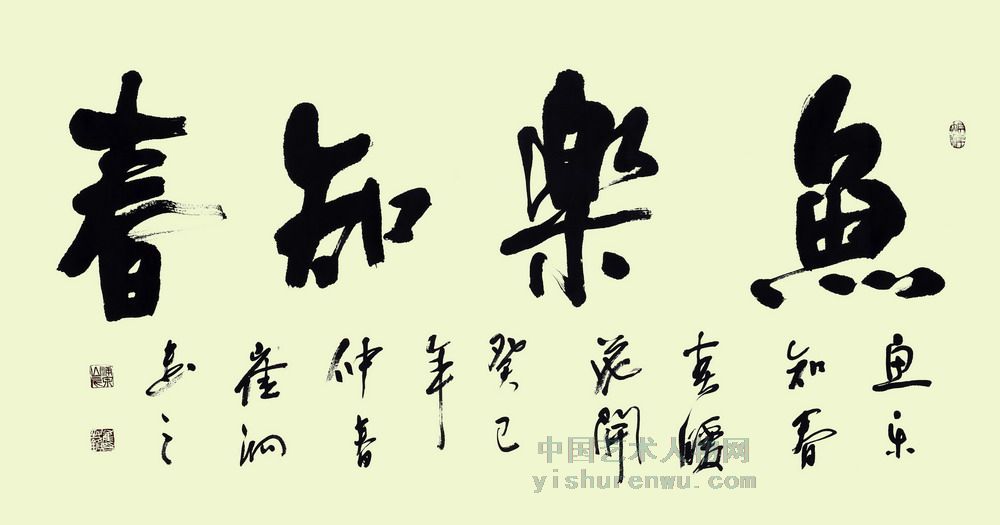 魚樂知春
鱼乐
知春
春暖
花開
癸巳
年
仲春
崔
书之
中国艺术人物网
yishurenwu.com